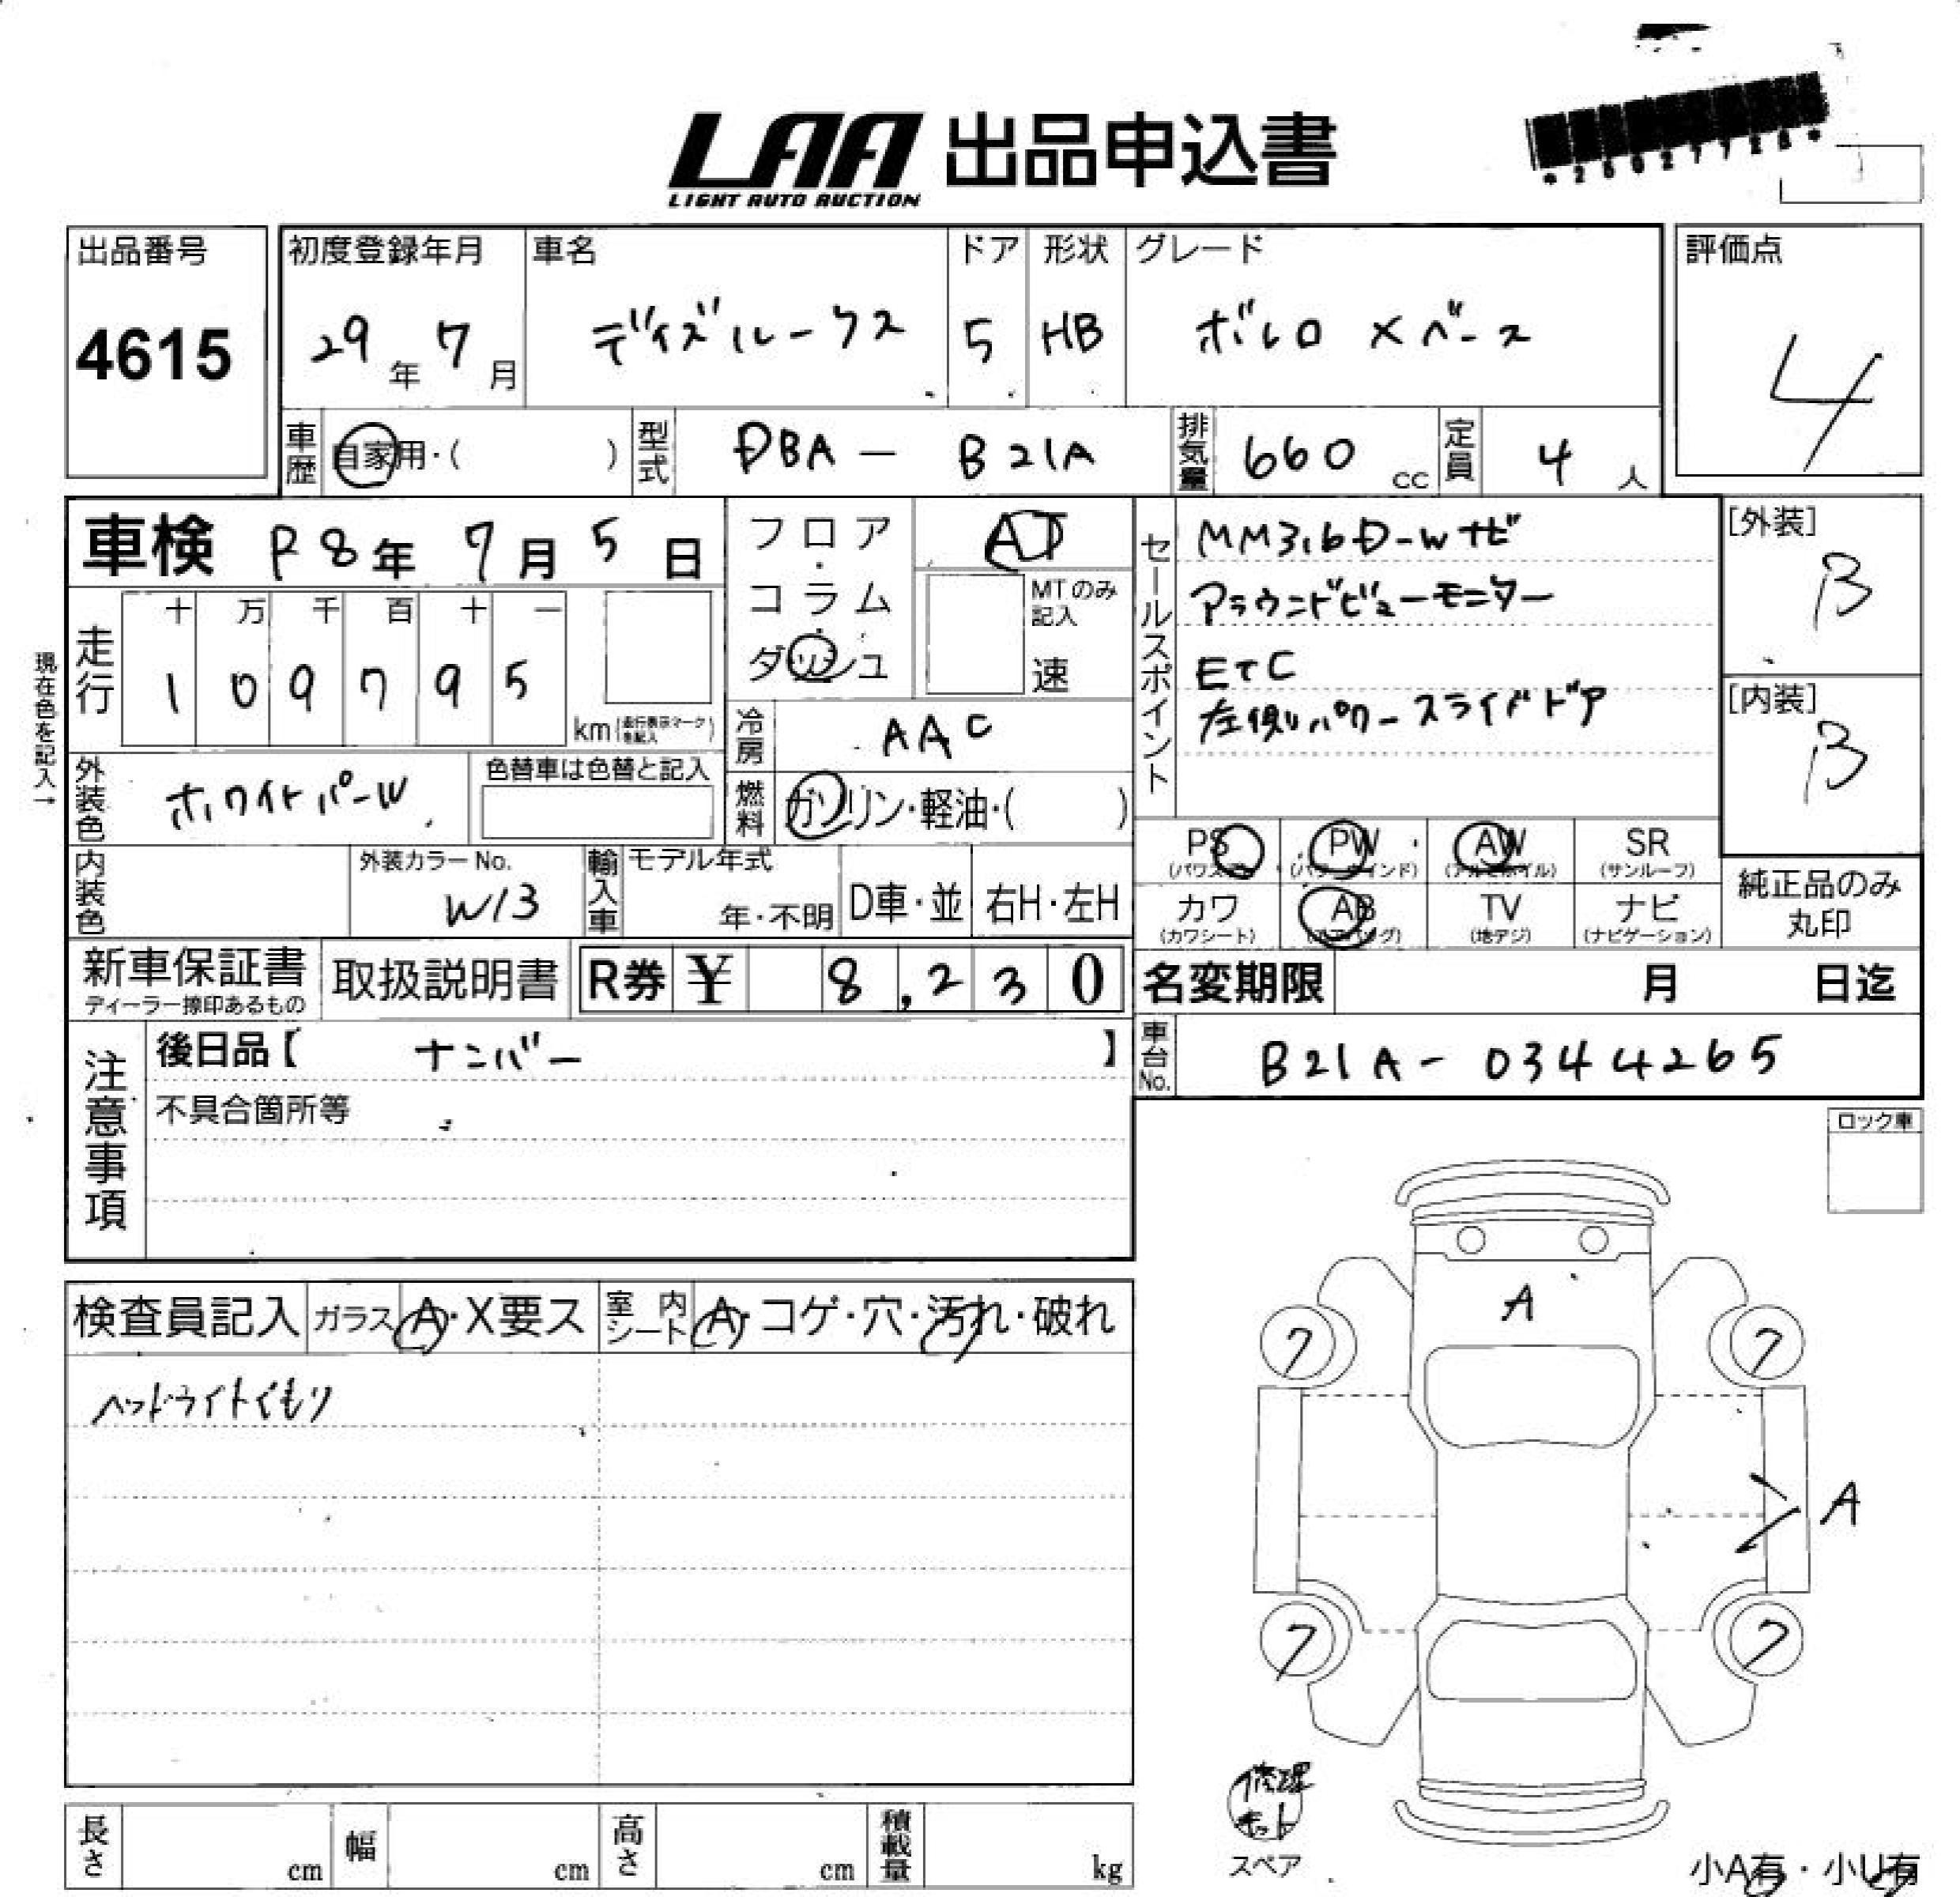 LAA 出品申込書
LIGHT AUTO AUCTION
*25027728*
出品番号
4615
初度登録年月
29年 7月
車名
デイズルークス
ドア
5
形状
HB
グレード
ボレロ Xベース
評価点
4
車歴
自家用・( )
型式
DBA - B21A
排気量
660 cc
定員
4 人
車検 R8年 7月 5日
フロア・コラム・ダッシュ
AT
MTのみ記入
速
セールスポイント
MM316D-Wナビ
アラウンドビューモニター
ETC
左側パワースライドドア
[外装]
B
[内装]
B
現在色を記入→
走行
十 万 千 百 十 一
1 0 9 7 9 5
km (走行表示マークを記入)
冷房
AAC
外装色
ホワイトパールW
色替車は色替と記入
燃料
ガソリン・軽油・( )
PS (パワステ)
PW (パワーウインド)
AW (アルミホイル)
SR (サンルーフ)
カワ (カワシート)
AB (エアバッグ)
TV (地デジ)
ナビ (ナビゲーション)
純正品のみ丸印
内装色
外装カラーNo.
W13
輸入車
モデル年式
年・不明
D車・並
右H・左H
新車保証書
ディーラー捺印あるもの
取扱説明書
R券 ¥ 8,230
名変期限 月 日迄
注意事項
後日品【 ナンバー 】
不具合箇所等
車台No.
B21A - 0344265
ロック車
検査員記入
ガラス A・X要ス
室内シート A・コゲ・穴・汚れ・破れ
ヘッドライトくもり
A
7
7
A
7
7
修理キット
スペア
小A有・小U有
長さ cm
幅 cm
高さ cm
積載量 kg